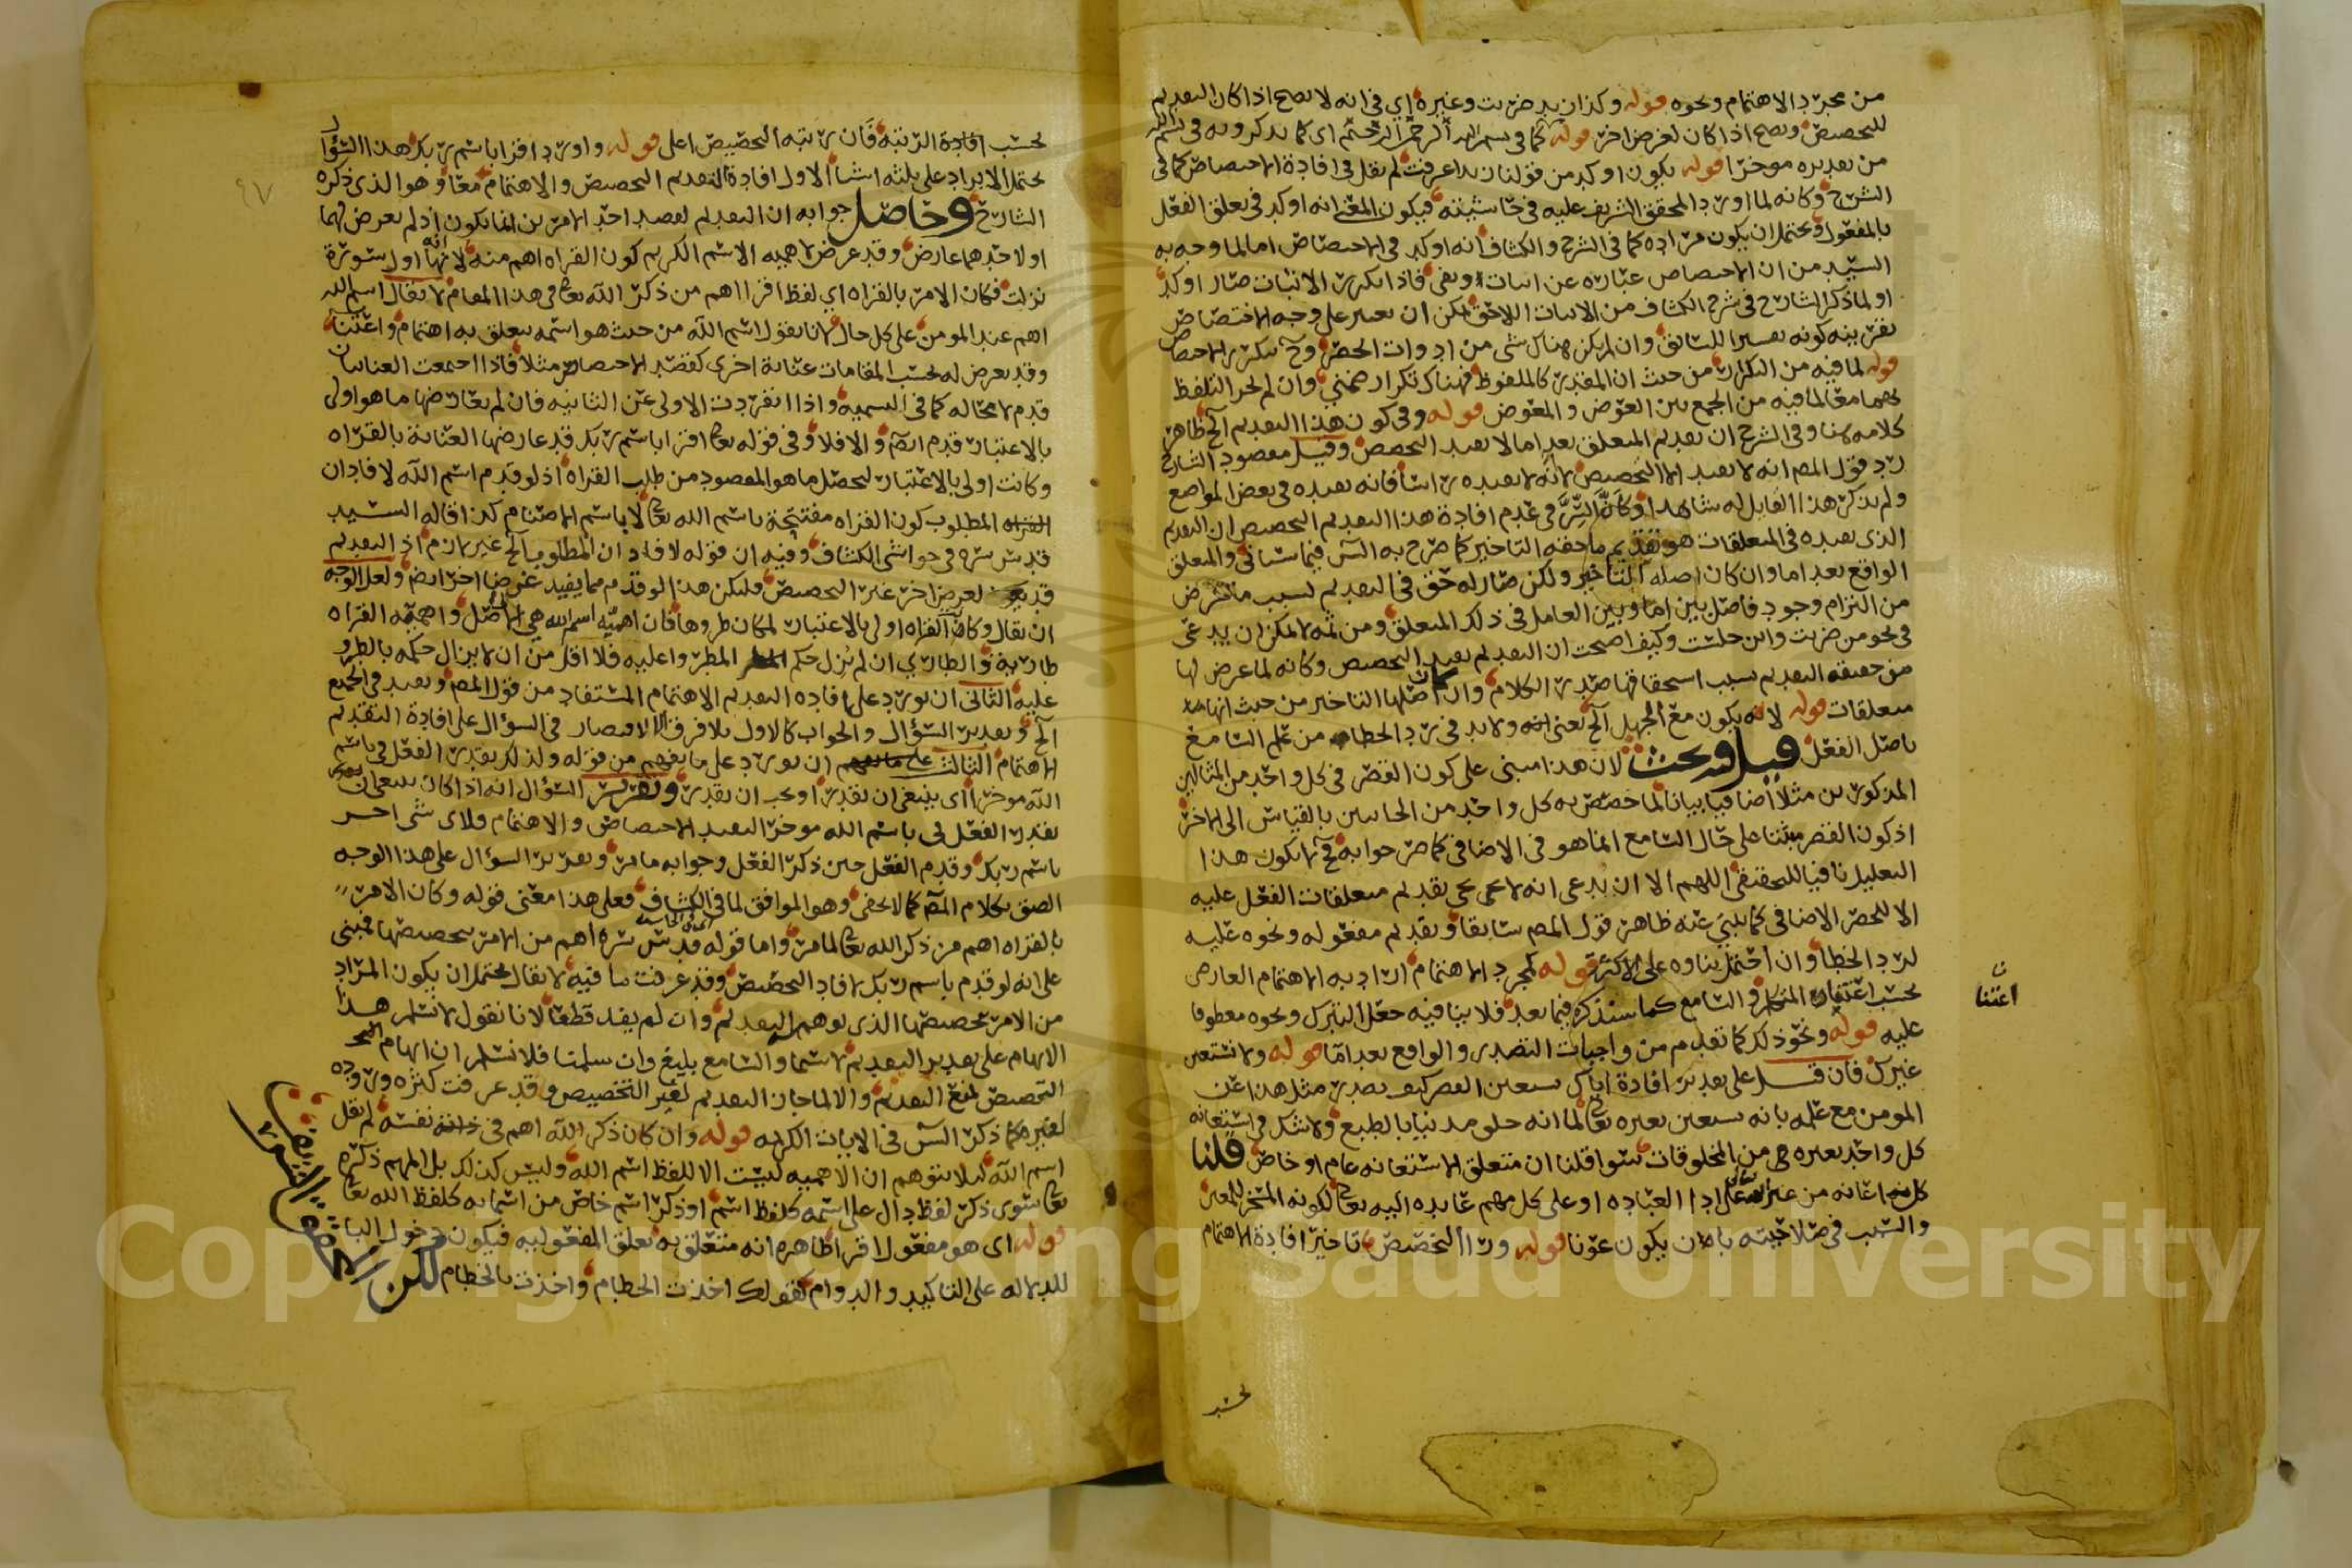 من مجرد الاهتمام ونحوه قوله وكذا زيد ضربت وغيره اي في انه لا يصح اذا كان التقديم
للتخصيص ويصح اذا كان لغرض اخر قوله كما في بسم الله الرحمن الرحيم اي كما يذكرونه في بسم الله
من تقديره موخرا قوله يكون اوكد من قولنا زيدا عرفت لم يقل في افادة الاختصاص كما في
الشرح وكانه لما اورد المحقق الشريف عليه في حاشيته فيكون المعنى انه اوكد في تعلق الفعل
بالمفعول ويحتمل ان يكون مراده كما في الشرح والكشاف انه اوكد في الاختصاص اما لما وجه به
السيد من ان الاختصاص عبارة عن اثبات ونفي فاذا تكرر الاثبات صار اوكد
او لما ذكر الشارح في شرح الكشاف من الاثبات اللاحق يمكن ان يعتبر على وجه الاختصاص
بقرينه كونه تفسيرا للسابق وان لم يكن هناك شى من ادوات الحصر وح يتكرر الاختصاص
قوله لما فيه من التكرار من حيث ان المقدر كالملفوظ فهناك تكرار ضمني وان لم يجز التلفظ
بهما معا لما فيه من الجمع بين العوض والمعوض قوله وفي كون هذا التقديم الخ ظاهر
كلامه هنا وفي الشرح ان تقديم المتعلق بعد اما لا يفيد التخصيص وقيل مقصود الشارح
رد قول المص انه لا يفيد الا التخصيص لانه لا يفيده راسا فانه يفيده في بعض المواضع
ولم يذكر هذا القايل له شاهدا وكأن السر في عدم افادة هذا التقديم التخصيص ان التقديم
الذي يفيده في المتعلقات هو تقديم ما حقه التاخير كما صرح به الش فيما سياتي والمتعلق
الواقع بعد اما وان كان اصله التاخير ولكن صار له حق في التقديم بسبب ما عرض
من التزام وجود فاصل بين اما وبين العامل في ذلك المتعلق ومن ثمه لا يمكن ان يدعى
في نحو من ضربت واين جلست وكيف اصبحت ان التقديم يفيد التخصيص وكانه لما عرض لها
من حقيقه التقديم بسبب استحقاقها صدر الكلام وان كان اصلها التاخير من حيث انها
متعلقات قوله لانه يكون مع الجهل الخ يعني ولا بد في رد الخطا من علم السامع
باصل الفعل قيل وفيه بحث لان هذا مبنى على كون القصر في كل واحد من المثالين
المذكورين مثلا اضافيا بيانا لما خصص به كل واحد من الجانبين بالقياس الى الاخر
اذ كون القصر مبتنا على حال السامع انما هو في الاضافي كما مر جوابه فح لا يكون هذا
التعليل نافيا للحقيقي اللهم الا ان يدعى انه لا يجي تقديم متعلقات الفعل عليه
الا للحصر الاضافي كما يلبي عنه ظاهر قول المص سابقا وتقديم مفعوله ونحوه عليه
لرد الخطا وان احتمل بناوه على الاكثر قوله لمجرد الاهتمام اراد به الاهتمام العارض
بحسب اعتناء المتكلم والسامع كما سنذكره فيما بعد فلا ينافيه جعل التبرك ونحوه معطوفا
اعتنا
عليه قوله ونحو ذلك كما تقدم من واجبات التصدر والواقع بعد اما قوله ولا نستعين
غيرك فان قيل على تقدير افادة اياك نستعين القصر كيف يصدر مثل هذا عن
المومن مع علمه بانه يستعين بغيره تعالى لما انه خلق مدنيا بالطبع ولا شك في استعانه
كل واحد بغيره من المخلوقات سوا قلنا ان متعلق الاستعانه عام او خاص قلنا
كل اعانه من غير الله على ادا العباده او على كل مهم عايده اليه تعالى لكونه المسخر للمعين
والسبب في صلاحيته بان يكون عونا قوله ورا التخصيص تاخيرا افادة الاهتمام
بحسب
٩٧
بحسب افادة الرتبة فان رتبه التخصيص اعلى قوله واورد اقرا باسم ربك هذا السؤال
يحتمل الايراد على ثلثه اشيا الاول افادة التقديم التخصيص والاهتمام معا وهو الذي ذكره
الشارح وحاصل جوابه ان التقديم لقصد احد الامرين انما يكون اذ لم يعرض لهما
او لاحدهما عارض وقد عرض لاهميه الاسم الكريم كون القراه اهم منه لانها اول سورة
نزلت فكان الامر بالقراه اي لفظ اقرا اهم من ذكر الله تعالى في هذا المقام لا يقال اسم الله
اهم عند المومن على كل حال لانا نقول اسم الله من حيث هو اسمه يتعلق به اهتمام واعتناء
وقد يعرض له بحسب المقامات عناية اخرى كقصد الاختصاص مثلا فاذا اجتمعت العنايتان
قدم لا محاله كما في التسميه واذا انفردت الاولى عن الثانيه فان لم يعارضها ما هو اولى
بالاعتبار قدم ايضا والا فلا وفي قوله تعالى اقرا باسم ربك قد عارضها العناية بالقراه
وكانت اولى بالاعتبار ليحصل ما هو المقصود من طلب القراه اذ لو قدم اسم الله لافاد ان
المطلوب كون القراه مفتتحة باسم الله تعالى لا باسم الاصنام كذا قاله السيد
قدس سره في حواشى الكشاف وفيه ان قوله لافاد ان المطلوب الخ غير لازم اذ التقديم
قد يكون لغرض اخر غير التخصيص فليكن هذا لو قدم مما يفيد غرضا اخر ايضا ولعل الوجه
ان يقال وكان القراه اولى بالاعتبار لمكان طروها فان اهمية اسم الله هي الاصل واهمية القراه
طارية والطاري ان لم يزل حكم المطروا عليه فلا اقل من ان لا يزال حكمه بالطرو
عليه الثاني ان يورد على افاده التقديم الاهتمام المستفاد من قول المص ويفيد في الجميع
الخ وتقدير السؤال والجواب كالاول بلا فرق الا الاقتصار في السؤال على افادة التقديم
الاهتمام الثالث ان يورد على ما يفهم من قوله ولذلك يقدر الفعل في باسم
الله موخرا اي ينبغي ان يقدر او يجب ان يقدر وتقرير السؤال انه اذا كان ينبغي ان
يقدر الفعل في باسم الله موخرا ليفيد الاختصاص والاهتمام فلاى شى اخر
باسم ربك وقدم الفعل حين ذكر الفعل وجوابه ما مر وتقرير السؤال على هذا الوجه
الصق بكلام المص كما لا يخفى وهو الموافق لما في الكشاف فعلى هذا معنى قوله وكان الامر
بالقراه اهم من ذكر الله تعالى لما مر واما قوله قدس سره اهم من الامر بتخصيصها فمبنى
على انه لو قدم باسم ربك لافاد التخصيص وقد عرفت ما فيه لا يقال يحتمل ان يكون المراد
من الامر تخصيصها الذي يوهم التقديم وان لم يفد قطعا لانا نقول لا نسلم هذا
الايهام على تقدير التقديم لا سيما والسامع بليغ وان سلمنا فلا نسلم ان ايهام
التخصيص لمنع التقديم والا لما جاز التقديم لغير التخصيص وقد عرفت كثره وروده
لغيره كما ذكر الش في الايات الكريمه قوله وان كان ذكر الله اهم في نفسه لم يقل
اسم الله ليلا يتوهم ان الاهميه ليست الا للفظ اسم الله وليس كذلك بل المهم ذكره
تعالى سوى ذكر لفظ دال على اسمه كلفظ اسم او ذكر اسم خاص من اسمايه كلفظ الله تعالى
قوله اي هو مفعول لاقرا ظاهره انه متعلق به تعلق المفعوليه فيكون دخول الباء
للدلاله على التاكيد والدوام كقولك اخذت الخطام واخذت بالخطام لكن